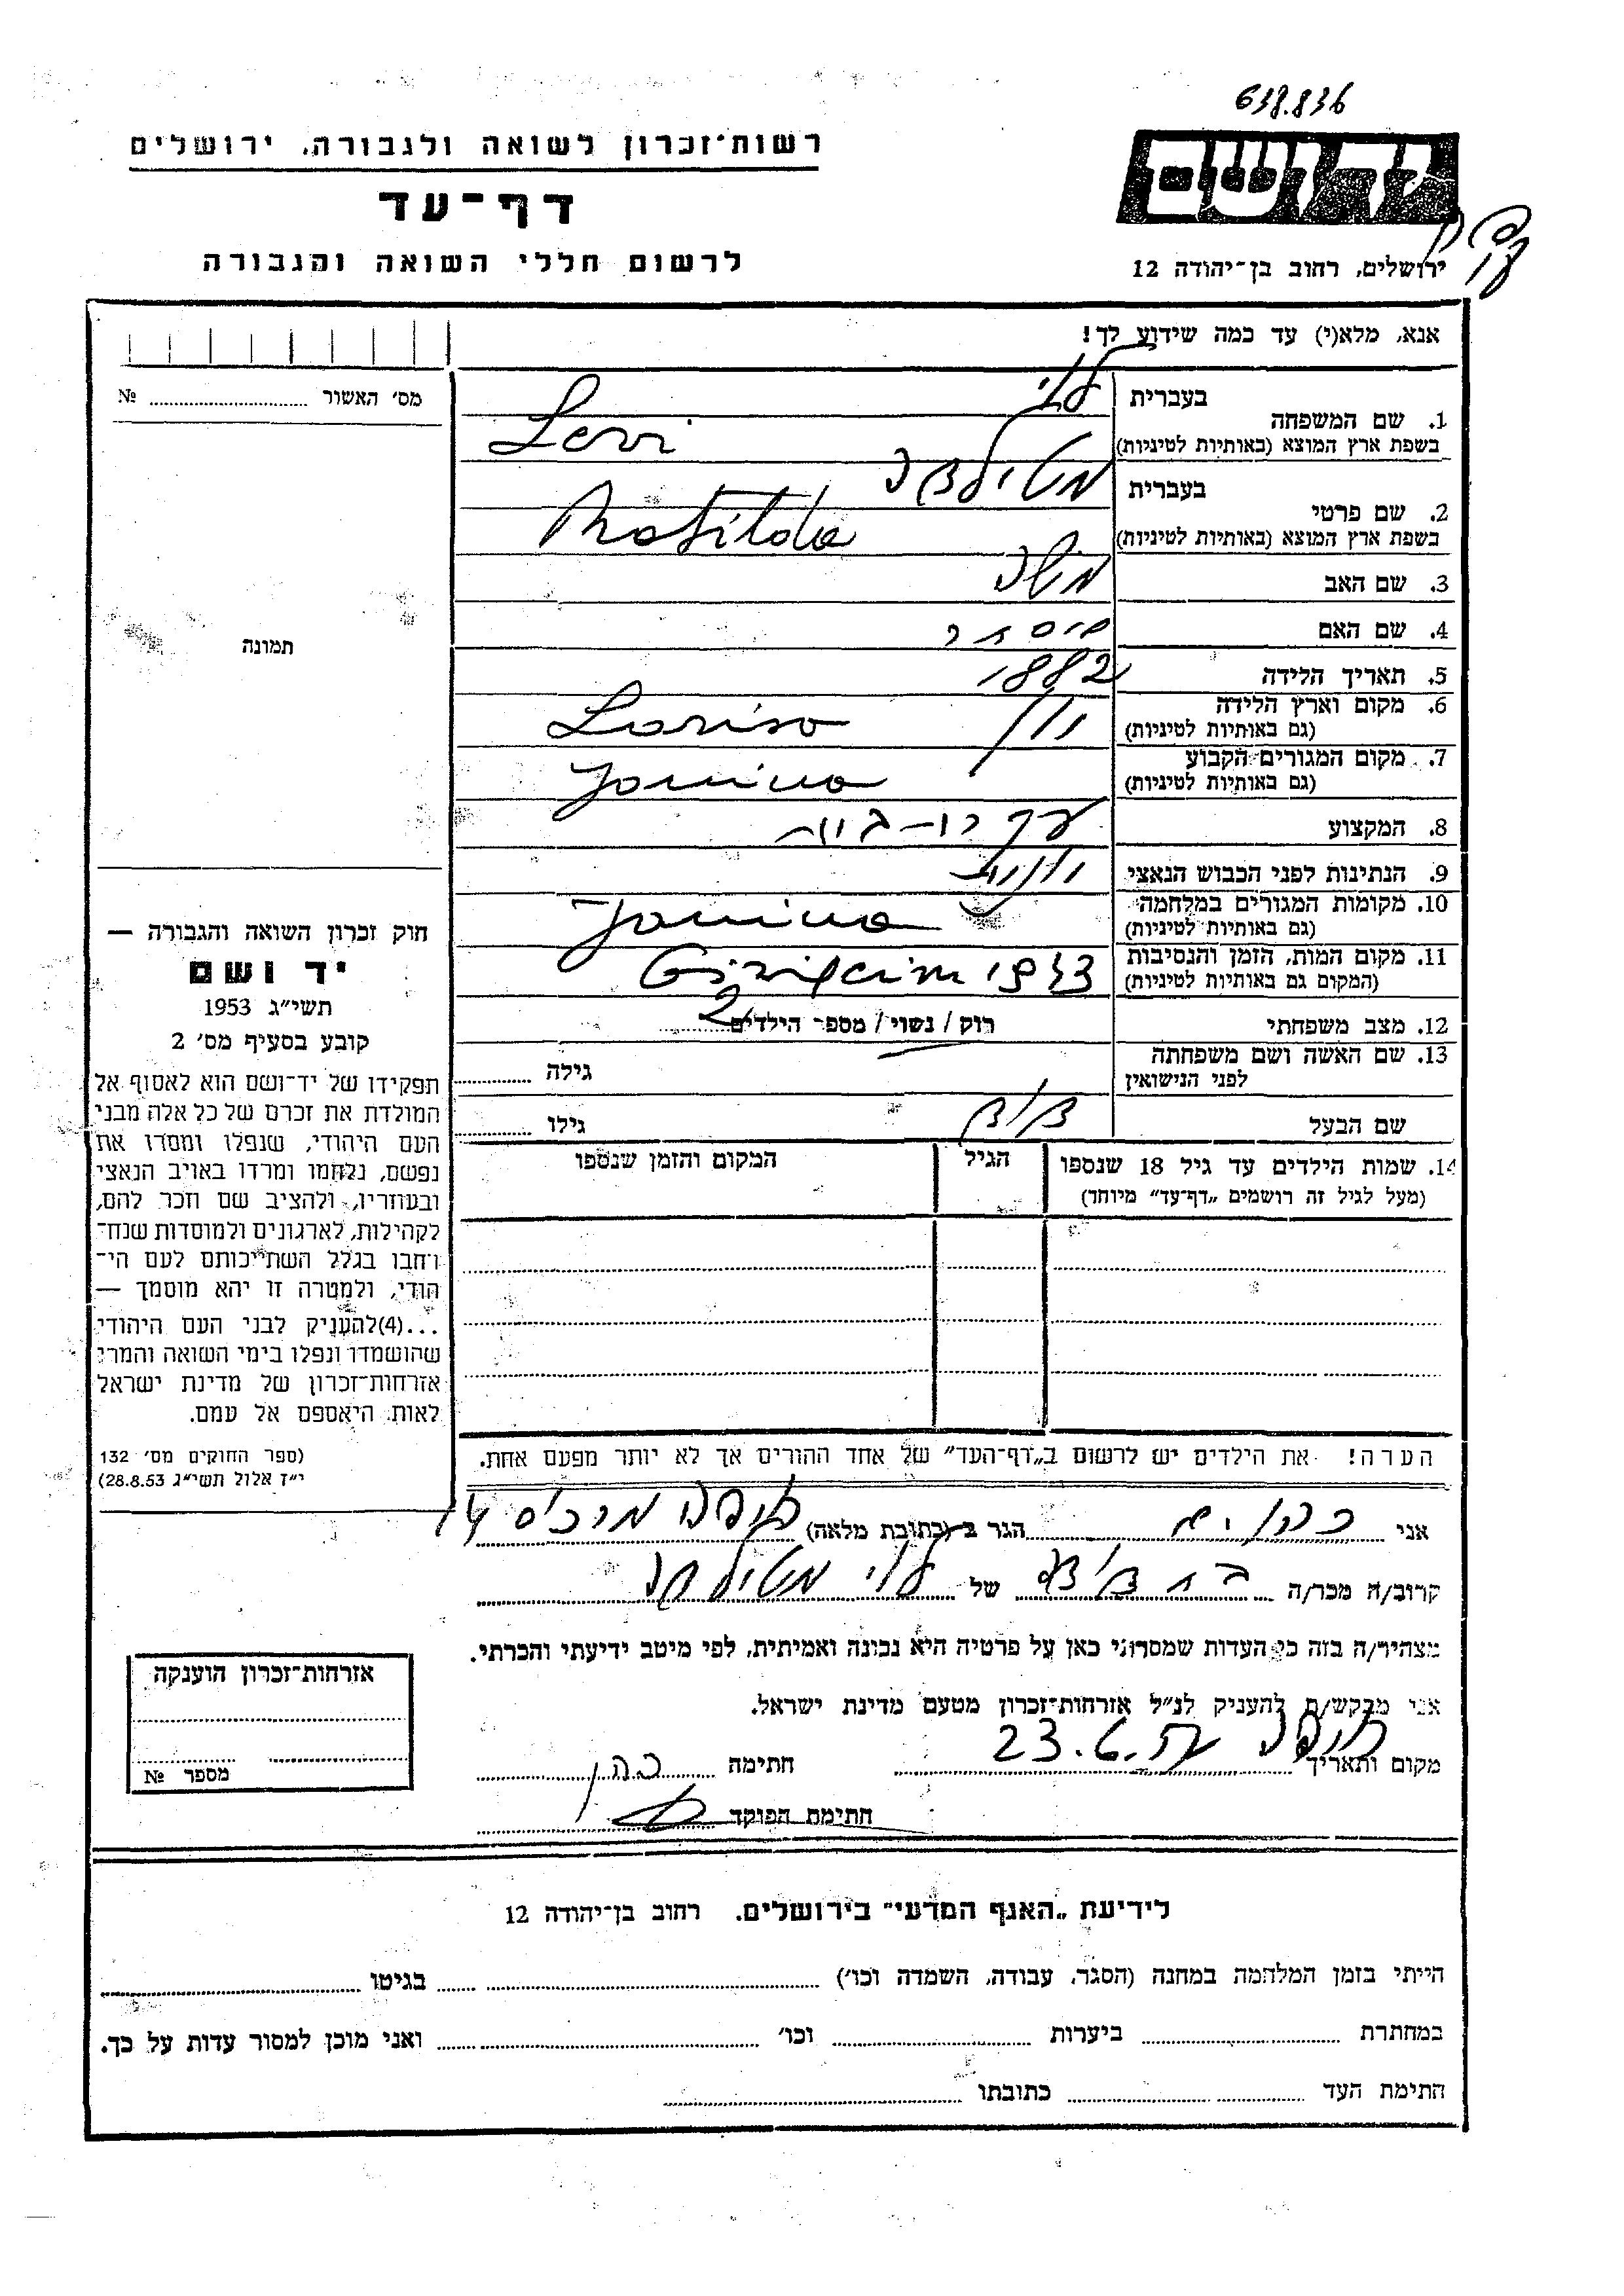 638.836
רשות־זכרון לשואה ולגבורה, ירושלים
יד ושם
דף־עד
לרשום חללי השואה והגבורה
ירושלים, רחוב בן־יהודה 12
אנא, מלא(י) עד כמה שידוע לך!
מס׳ האשור № 
1. שם המשפחה
בעברית לוי
בשפת ארץ המוצא (באותיות לטיניות) Levi
2. שם פרטי
בעברית מטילדה
בשפת ארץ המוצא (באותיות לטיניות) Matilda
3. שם האב משה
4. שם האם
5. תאריך הלידה 1882
6. מקום וארץ הלידה
(גם באותיות לטיניות) יון Lariso
7. מקום המגורים הקבוע
(גם באותיות לטיניות) Janina
8. המקצוע עקרת־בית
9. הנתינות לפני הכבוש הנאצי יונית
10. מקומות המגורים במלחמה
(גם באותיות לטיניות) Janina
11. מקום המות, הזמן והנסיבות
(המקום גם באותיות לטיניות)
12. מצב משפחתי רווק / נשוי / מספר הילדים 2
13. שם האשה ושם משפחתה
לפני הנישואין גילה
שם הבעל גילו
14. שמות הילדים עד גיל 18 שנספו הגיל המקום והזמן שנספו
(מעל לגיל זה רושמים „דף־עד״ מיוחד)
תמונה
חוק זכרון השואה והגבורה —
יד ושם
תשי״ג 1953
קובע בסעיף מס׳ 2
תפקידו של יד־ושם הוא לאסוף אל
המולדת את זכרם של כל אלה מבני
העם היהודי, שנפלו ומסרו את
נפשם, נלחמו ומרדו באויב הנאצי
ובעוזריו, ולהציב שם וזכר להם,
לקהילות, לארגונים ולמוסדות שנח־
רבו בגלל השתייכותם לעם הי־
הודי, ולמטרה זו יהא מוסמך —
...(4) להעניק לבני העם היהודי
שהושמדו ונפלו בימי השואה והמרי
אזרחות־זכרון של מדינת ישראל
לאות היאספם אל עמם.
(ספר החוקים מס׳ 132
י״ז אלול תשי״ג 28.8.53)
הערה! את הילדים יש לרשום ב„דף־העד״ של אחד ההורים אך לא יותר מפעם אחת.
אני כהן הגר ב (כתובת מלאה) חיפה 14
קרוב/ה מכר/ה של לוי מטילדה
מצהיר/ה בזה כי העדות שמסרתי כאן על פרטיה היא נכונה ואמיתית, לפי מיטב ידיעתי והכרתי.
אני מבקש/ת להעניק לנ״ל אזרחות־זכרון מטעם מדינת ישראל.
מקום ותאריך חיפה 23.6. חתימה כהן
חתימת הפוקד
אזרחות־זכרון הוענקה
מספר №
לידיעת „האגף המדעי״ בירושלים. רחוב בן־יהודה 12
הייתי בזמן המלחמה במחנה (הסגר, עבודה, השמדה וכו׳) בגיטו
במחתרת ביערות וכו׳ ואני מוכן למסור עדות על כך.
חתימת העד כתובתו